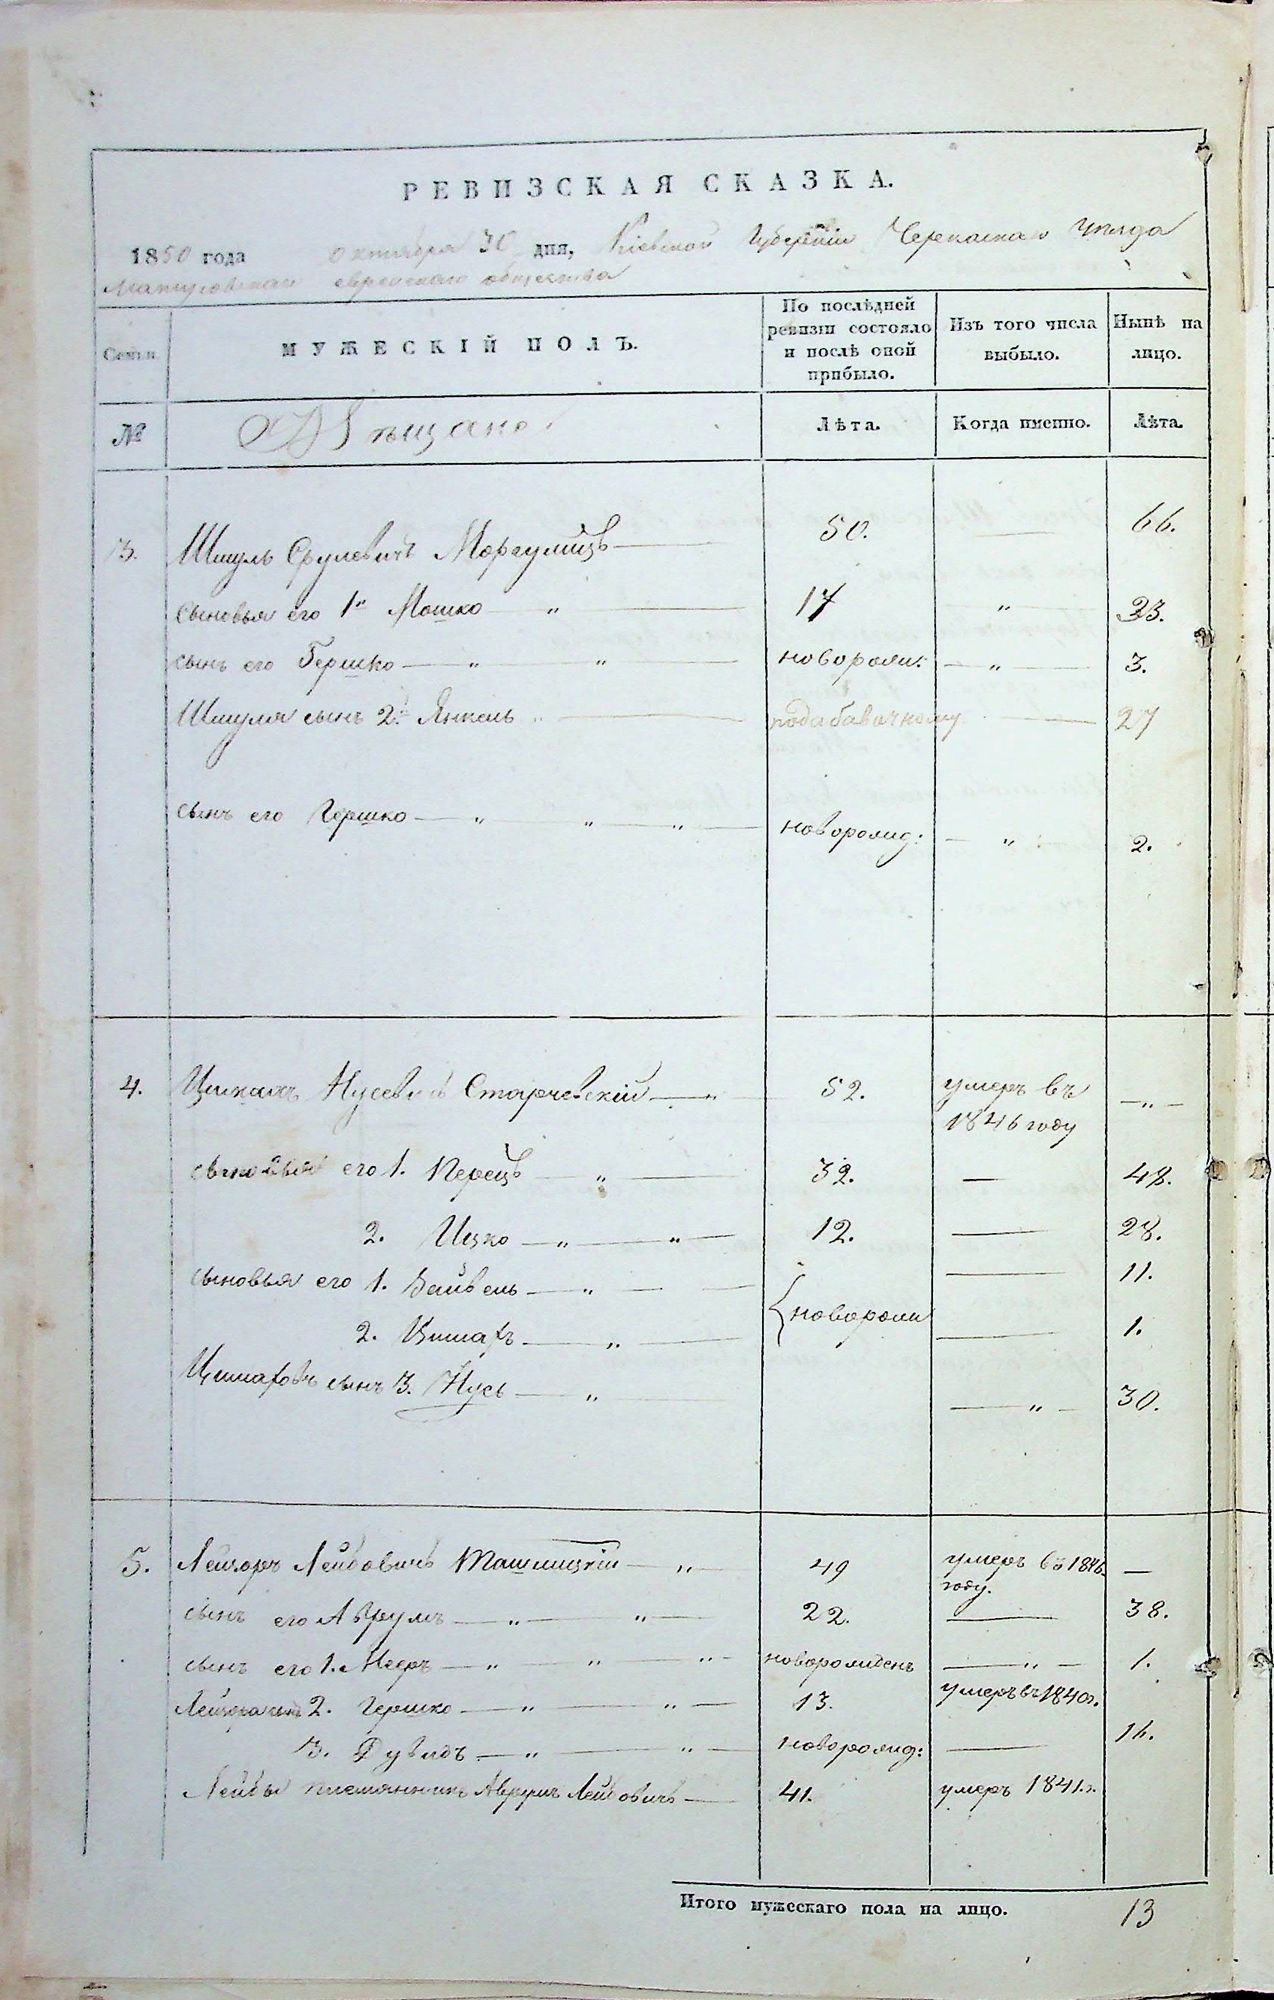 РЕВИЗСКАЯ СКАЗКА.
1850 года октября 30 дня, Кіевской Губерніи Черкаскаго уѣзда
еврейскаго общества
Семьи.
МУЖЕСКІЙ ПОЛЪ.
По послѣдней ревизіи состояло и послѣ оной прибыло.
Изъ того числа выбыло.
Нынѣ на лицо.
№
Мѣщане.
Лѣта.
Когда именно.
Лѣта.
3. Шмуль Срулевичъ Моргулисъ — 50. — 66.
сыновья его 1й Мошко — " — 17 " 23.
сынъ его Гершко — " " — новорожд: — " — 3.
Шмуля сынъ 2й Янкель " — 27
сынъ его Гершко — " " " — новорожд: — " 2.
4. Нусевичъ Старчевскій — " — 52. умеръ въ 1846 году — " —
сыновья его 1. Перецъ — " — 32. — 48.
2. Ицко — " — " — 12. — 28.
сыновья его 1. Зайвель — " — — 11.
{ новорожд
2. — " — — 1.
сынъ 3. Нусь — " — — " — 30.
5. Лейзоръ Лейбовичъ Ташлицкій — " — 49 умеръ въ 1846 году. —
сынъ его Аврумъ — " — " — 22. — 38.
сынъ его 1. Мееръ — " " " — новорожденъ — " — 1.
2. Гершко — " " — 13. умеръ въ 1840г.
3. Дувидъ — " — " — новорожд: — 16.
Лейбы племянникъ Аврумъ Лейбовичъ — 41. умеръ 1841.г.
Итого мужескаго пола на лицо. 13